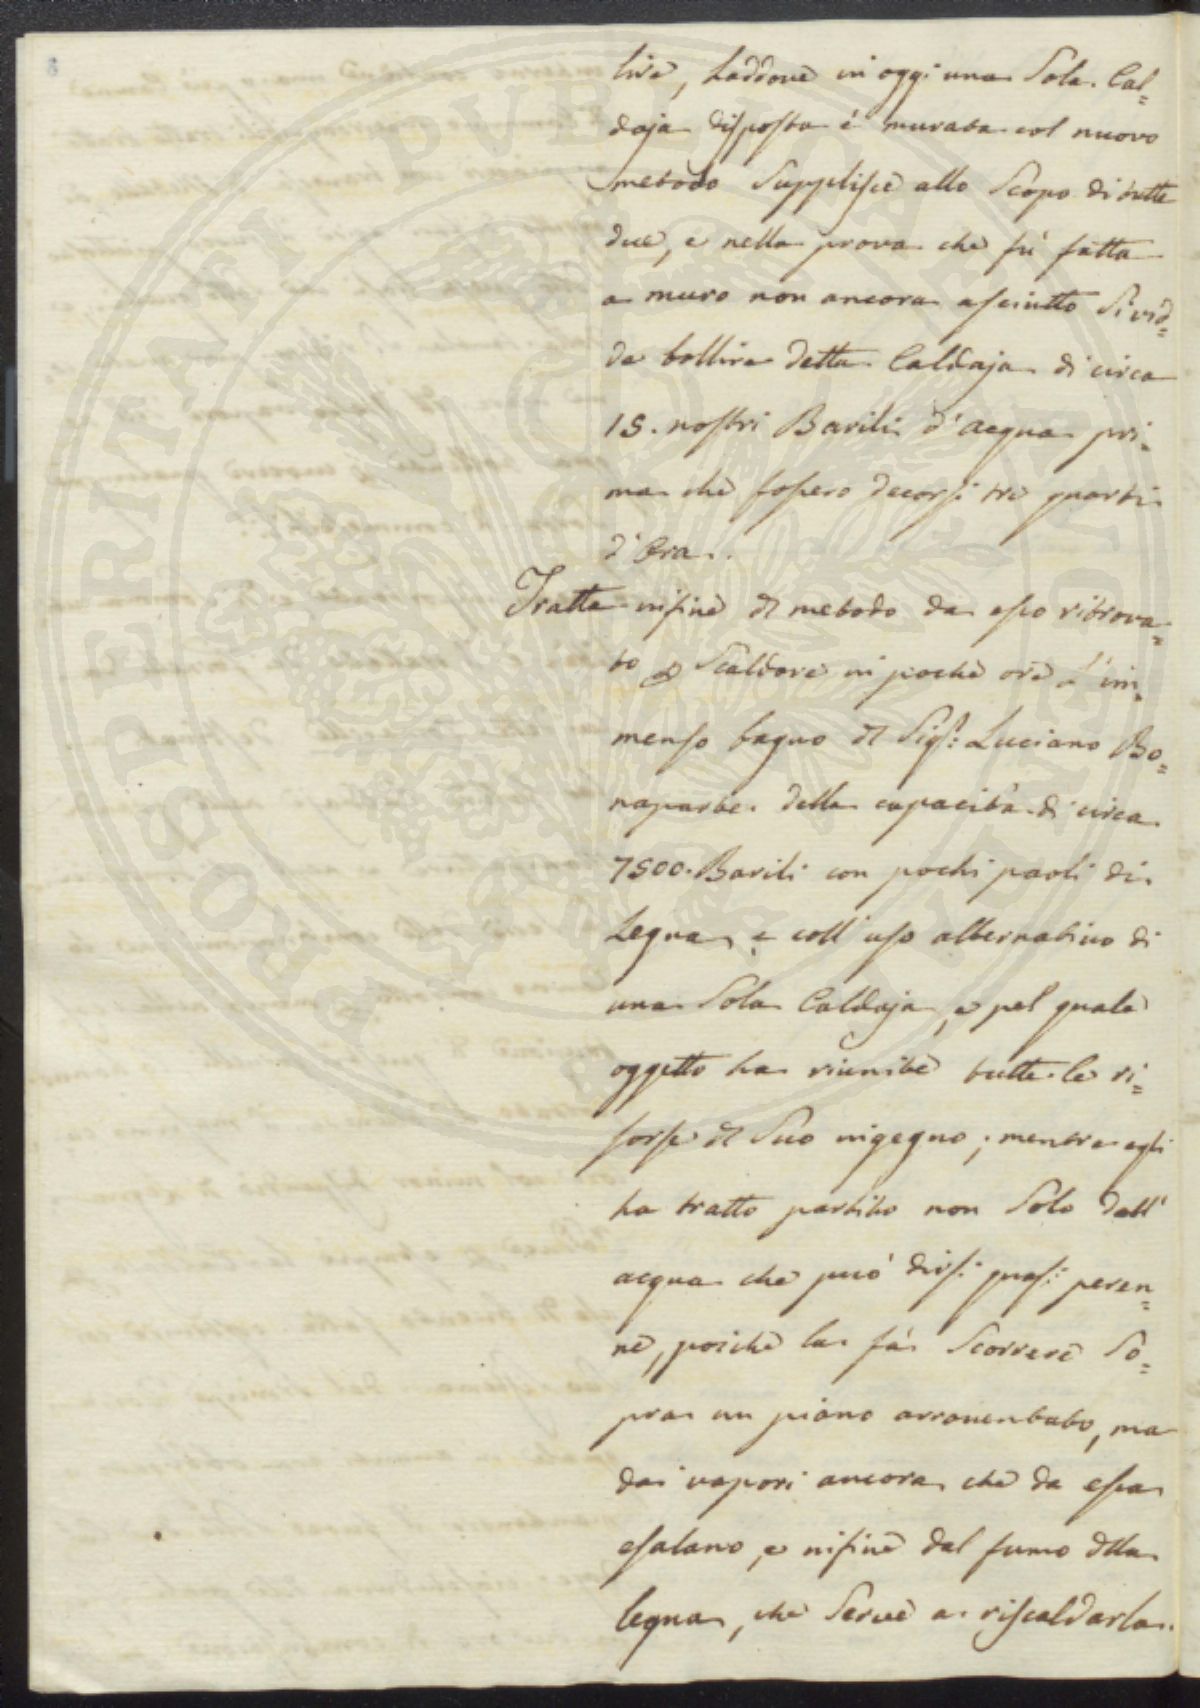 lire, Laddove in oggi una Sola Cal=
daja disposta è murata col nuovo
metodo Supplisce allo Scopo di tutte
due, e nella prova che fù fatta
a muro non ancora asciutto Si vid=
de bollire detta Caldaja di circa
15. nostri Barili d'acqua pri=
ma che fossero decorsi tre quarti
d'Ora.
Tratta infine di metodo da esso ritrova=
to Scaldare in poche ore L'im=
menso bagno di Sigr: Luciano Bo=
naparte della capacità di circa
7500. Barili con pochi paoli di
Legna, e coll'uso alternativo di
una Sola Caldaja, e pel quale
oggetto ha riunite tutte le ri=
sorse di Suo ingegno; mentre egli
ha tratto partito non Solo dall'
acqua che può dirsi quasi peren=
ne, poichè la fà Scorrere So=
pra un piano arroventato, ma
dai vapori ancora che da essa
esalano, e infine dal fumo della
legna, che Serve a riscaldarla.
PROSPERITATI PUBLICAE AUGENDAE
8